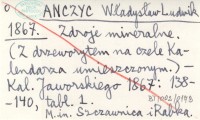 ANCZYC Władysław Ludwik
1867. Zdroje mineralne.
(Z drzeworytem na czele Ka-
lendarza umieszczonym.) –
Kal. Jaworskiego 1867. 138-
-140, tabl. 1.
M. in. Szczawnica i Rabka.